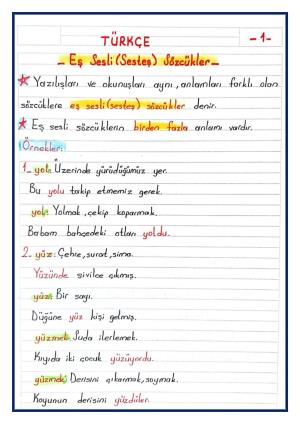 TÜRKÇE
-1-
- Eş Sesli (Sesteş) Sözcükler -
Yazılışları ve okunuşları aynı, anlamları farklı olan
sözcüklere eş sesli (sesteş) sözcükler denir.
Eş sesli sözcüklerin birden fazla anlamı vardır.
Örnekler:
1- yol: Üzerinde yürüdüğümüz yer.
Bu yolu takip etmemiz gerek.
yol: Yolmak, çekip koparmak.
Babam bahçedeki otları yoldu.
2- yüz: Çehre, surat, sima.
Yüzünde sivilce çıkmış.
yüz: Bir sayı.
Düğüne yüz kişi gelmiş.
yüzmek: Suda ilerlemek.
Kıyıda iki çocuk yüzüyordu.
yüzmek: Derisini çıkarmak, soymak.
Koyunun derisini yüzdüler.